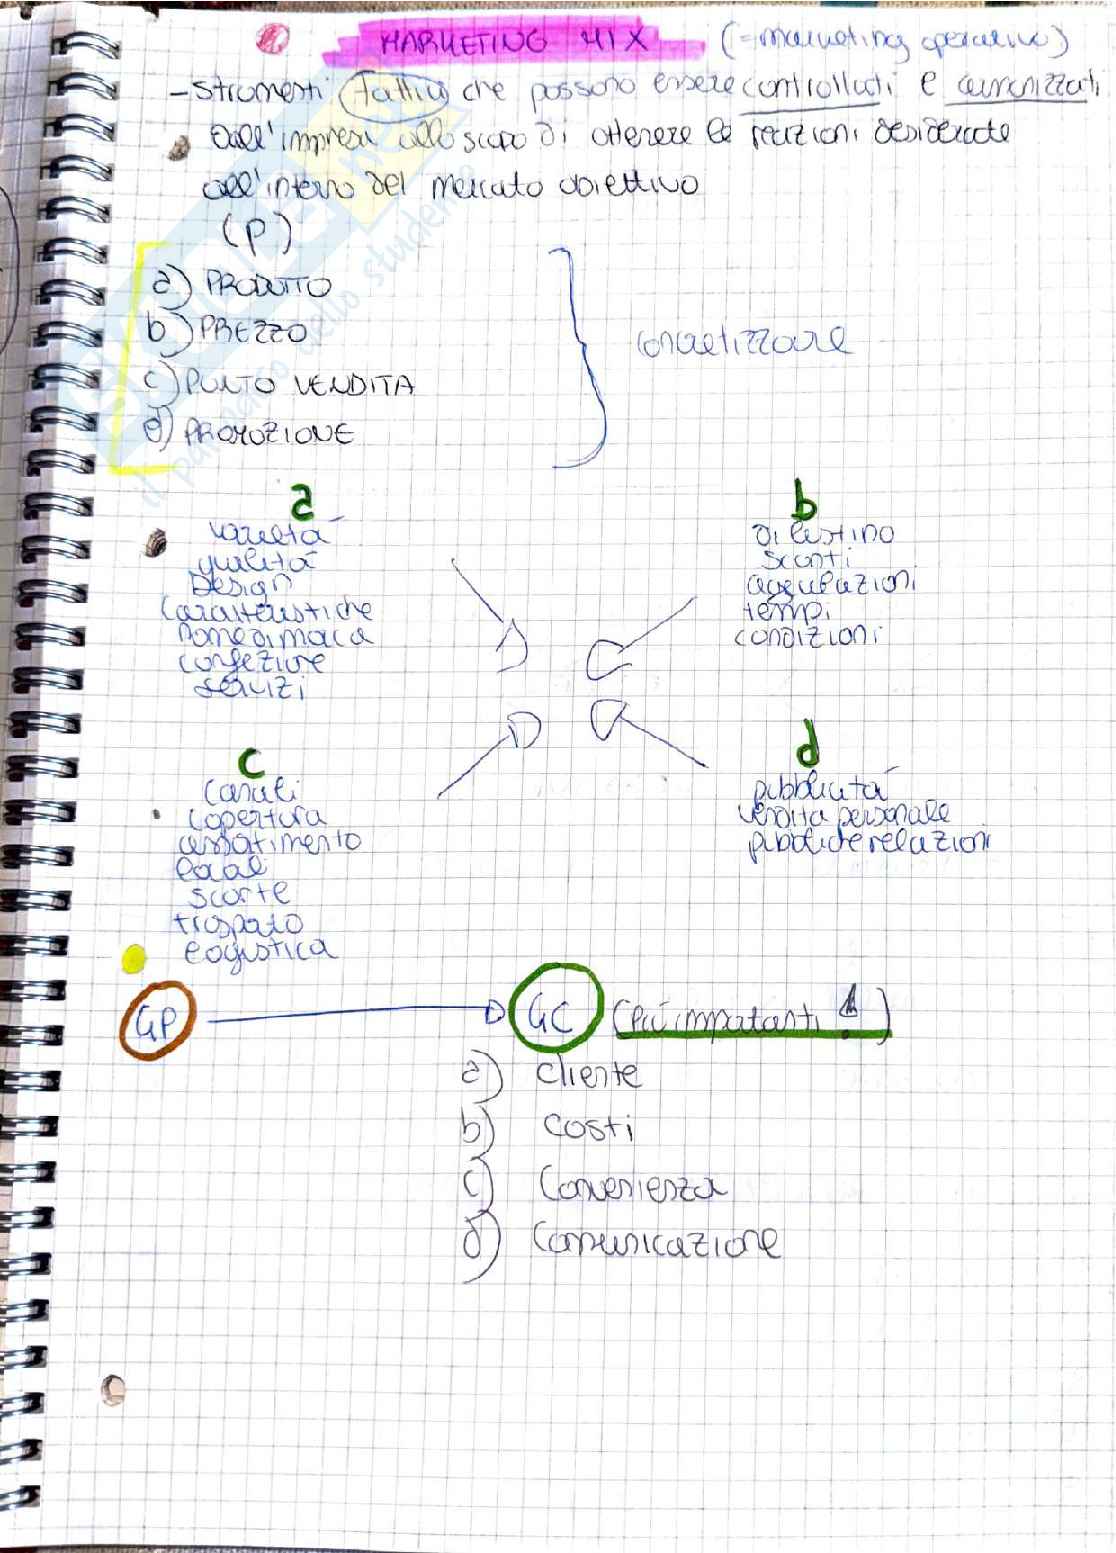 MARKETING MIX (=marketing operativo)
- strumenti tattici che possono essere controllati e armonizzati
dall'impresa allo scopo di ottenere le reazioni desiderate
all'interno del mercato obiettivo
(P)
a) PRODOTTO
b) PREZZO
c) PUNTO VENDITA
d) PROMOZIONE
concretizzare
a
varietà
qualità
Design
Caratteristiche
nome di marca
confezione
servizi
b
di listino
sconti
agevolazioni
tempi
condizioni
c
Canali
copertura
assortimento
locali
scorte
trasporto
logistica
d
pubblicità
vendita personale
pubbliche relazioni
4P
4C (più importanti!)
a) cliente
b) costi
c) Convenienza
d) Comunicazione